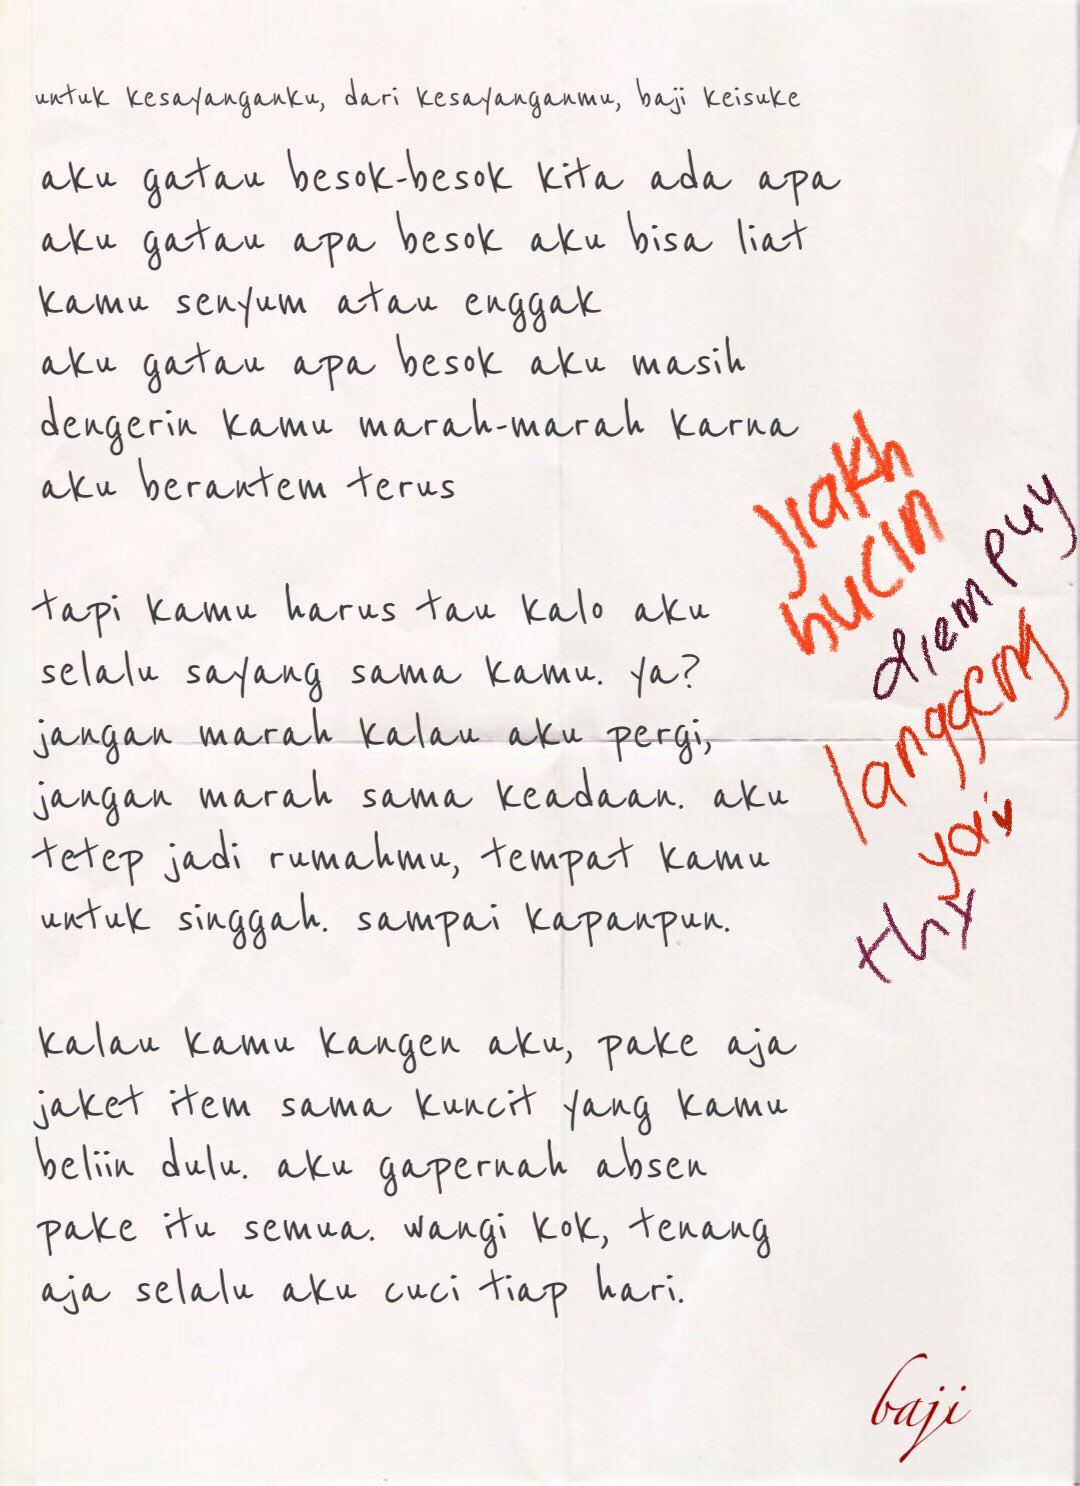 untuk kesayanganku, dari kesayanganmu, baji keisuke
aku gatau besok-besok kita ada apa
aku gatau apa besok aku bisa liat
kamu senyum atau enggak
aku gatau apa besok aku masih
dengerin kamu marah-marah karna
aku berantem terus
tapi kamu harus tau kalo aku
selalu sayang sama kamu. ya?
jangan marah kalau aku pergi,
jangan marah sama keadaan. aku
tetep jadi rumahmu, tempat kamu
untuk singgah. sampai kapanpun.
kalau kamu kangen aku, pake aja
jaket item sama kuncit yang kamu
beliin dulu. aku gapernah absen
pake itu semua. wangi kok, tenang
aja selalu aku cuci tiap hari.
jiakh
bucin
diem puy
langgeng
ya:
thx
baji